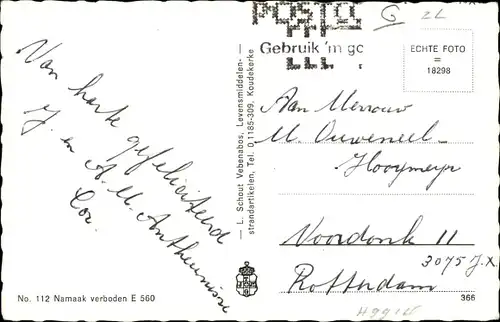 POSTC
Gebruik 'm go
G 2L
ECHTE FOTO
=
18298
Van harte gefeliciteerd
J. en A. M. Antheunisse
Cor.
— L. Schout Vebenabos, Levensmiddelen—
strandartikelen, Tel. 01185-309, Koudekerke
Aan Mevrouw
M. Ouweneel-
Hooymeyer
Noordonk 11
3075 J.X.
Rotterdam
No. 112 Namaak verboden E 560
366